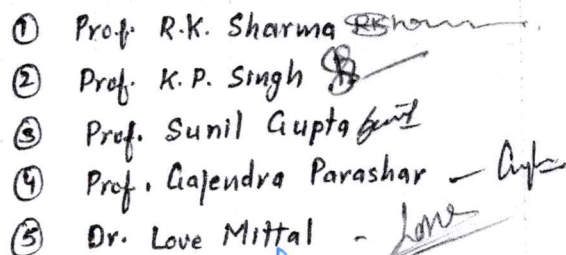 ① Prof. R.K. Sharma
② Prof. K.P. Singh
③ Prof. Sunil Gupta
④ Prof. Gajendra Parashar -
⑤ Dr. Love Mittal - Love